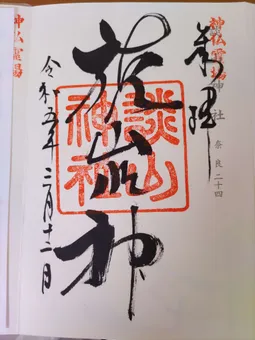 神仏霊場
奉拝
神社 奈良二十四
談山
神社
令和五年二月十二日
神仏霊場